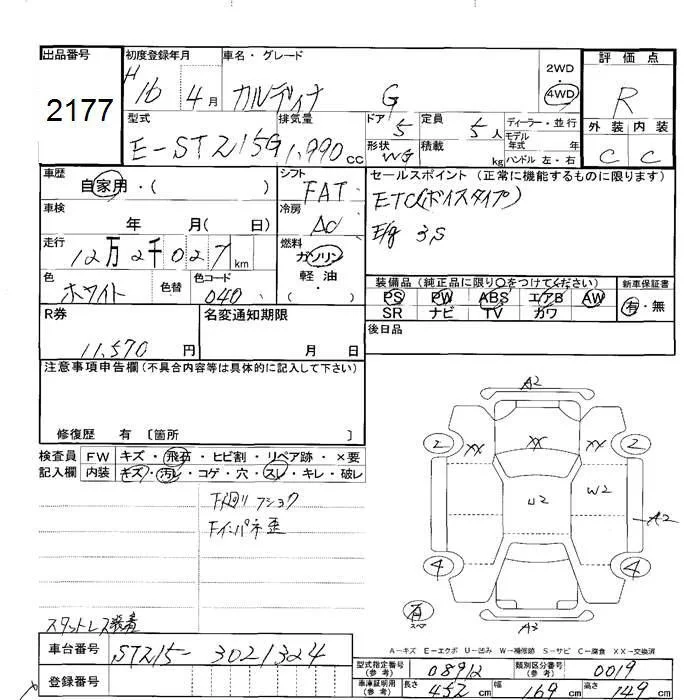 出品番号 初度登録年月 車名・グレード 評価点
2177 H 16年 4月 カルディナ G 2WD・4WD R
型式 排気量 ドア 定員 ディーラー・並行 外装 内装
E-ST215G 1,990cc 5 5人 モデル年式 年 C C
形状 WG 積載 kg ハンドル 左・右
車歴 シフト セールスポイント (正常に機能するものに限ります)
自家用・( ) FAT ETC(ボイスタイプ)
車検 冷房 E/g 3S
年 月( 日) AC
走行 燃料
12万2千027km ガソリン
軽油
( )
色 色替 色コード 装備品(純正品に限り○をつけてください) 新車保証書
ホワイト 040 PS PW ABS エアB AW 有・無
SR ナビ TV カワ
R券 名変通知期限 後日品
11,570円 月 日
注意事項申告欄(不具合内容等は具体的に記入して下さい)
修復歴 有 〔箇所 〕
検査員 FW キズ・飛石・ヒビ割・リペア跡・×要
記入欄 内装 キズ・汚レ・コゲ・穴・スレ・キレ・破レ
F廻リ ショック
Fインパネ歪
A2
2 XX XX XX 2
U2 W2
A2
4 4
有
スペア A3
スタットレス装着
A-キズ E-エクボ U-凹み W-補修跡 S-サビ C-腐食 XX-交換済
車台番号 ST215-3021324
登録番号
型式指定番号(参考) 08912 類別区分番号(参考) 0019
車庫証明用(参考) 長さ 452cm 幅 169cm 高さ 149cm